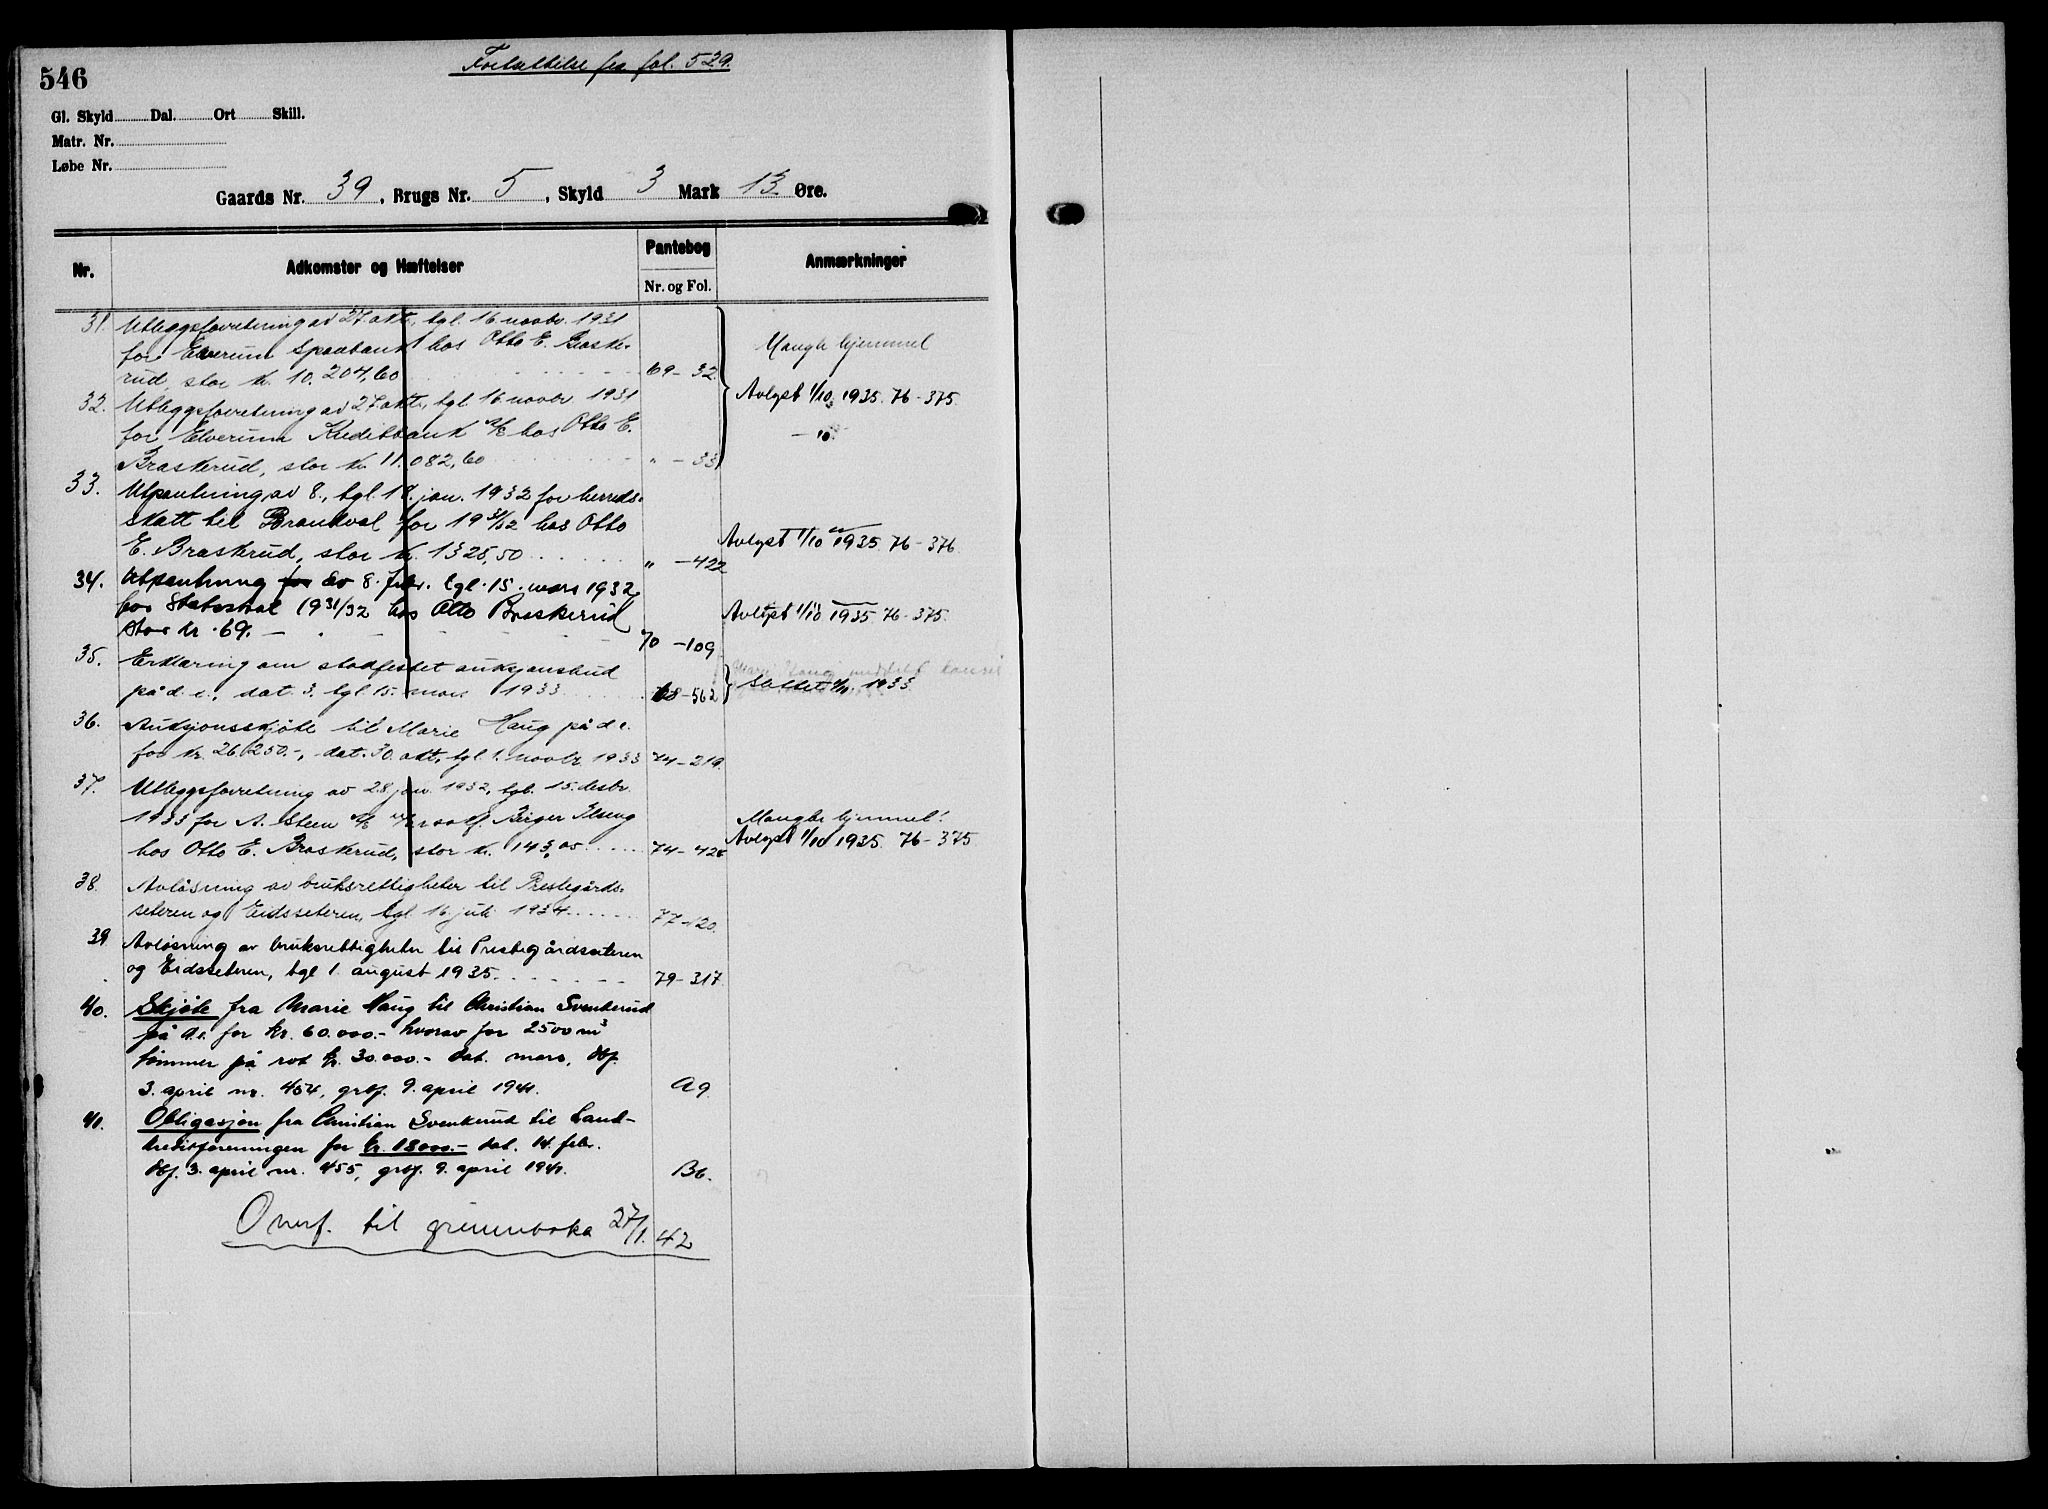 546
Fortsættelse fra fol. 529.
Gl. Skyld Dal. Ort Skill.
Matr. Nr.
Løbe Nr.
Gaards Nr. 39, Brugs Nr. 5, Skyld 3 Mark 13 Øre.
Nr. Adkomster og Hæftelser Pantebog Nr. og Fol. Anmærkninger
31. Utleggsforretning av 27. okt., tgl. 16 novbr. 1931
for Elverum Sparebank hos Otto E. Braske- Mangler hjemmel
rud, stor kr. 10.204,60 69 - 32
Avlyst 1/10 1935. 76 - 375.
32. Utleggsforretning av 27. okt., tgl. 16. novbr. 1931
for Elverum Kreditbank A/S hos Otto E. — " —
Braskerud, stor kr. 11.082,60 " - 33
33. Utpantning av 8., tgl. 18. jan. 1932 for herreds-
skatt til Brandval for 1931/32 hos Otto
E. Braskerud, stor kr. 1325,50 " - 422 Avlyst 1/10 1935. 76 - 376
34. Utpantning for av 8. febr. tgl. 15. mars 1932
for Statsskat 1931/32 hos Otto Braskerud Avlyst 1/10 1935. 76 - 375.
stor kr. 69. — 70 - 109
35. Erklæring om stadfestet auksjonsbud Marie Haug meddelt
på d. e., dat. 3. tgl. 15. mars 1933 68 - 562 Slettet 1/11 1933.
36. Auksjonsskjøte til Marie Haug på d. e.
for kr. 26250.-, dat. 30. okt., tgl. 1. novbr. 1933 74 - 219.
37. Utleggsforretning av 28. jan. 1932, tgl. 15. desbr.
1933 for A. Steen A/S v/ o.r.sakf. Birger Ilseng Mangler hjemmel!
hos Otto E. Braskerud, stor kr. 143,05 74 - 428 Avlyst 1/10 1935. 76 - 375
38. Avløsning av bruksrettigheter til Prestegårds-
seteren og Eidsseteren, tgl. 16. juli 1934 77 - 120.
39 Avløsning av bruksrettigheter til Prestegårdsseteren
og Eidsseteren, tgl 1. august 1935. 79 - 317
40. Skjøte fra Marie Haug til Christian Svenkerud
på d.e. for kr. 60.000.- hvorav for 2500 m³
tømmer på rot kr. 30.000.- dat. mars, dbf.
3. april nr. 454, grbf. 9. april 1941. A9.
41. Obligasjon fra Christian Svenkerud til Land-
kreditforeningen for kr. 18000.- dat. 14. febr.
dbf. 3. april nr. 455, grbf. 9. april 1941. B6.
Overf. til grunnboka 27/1. 42